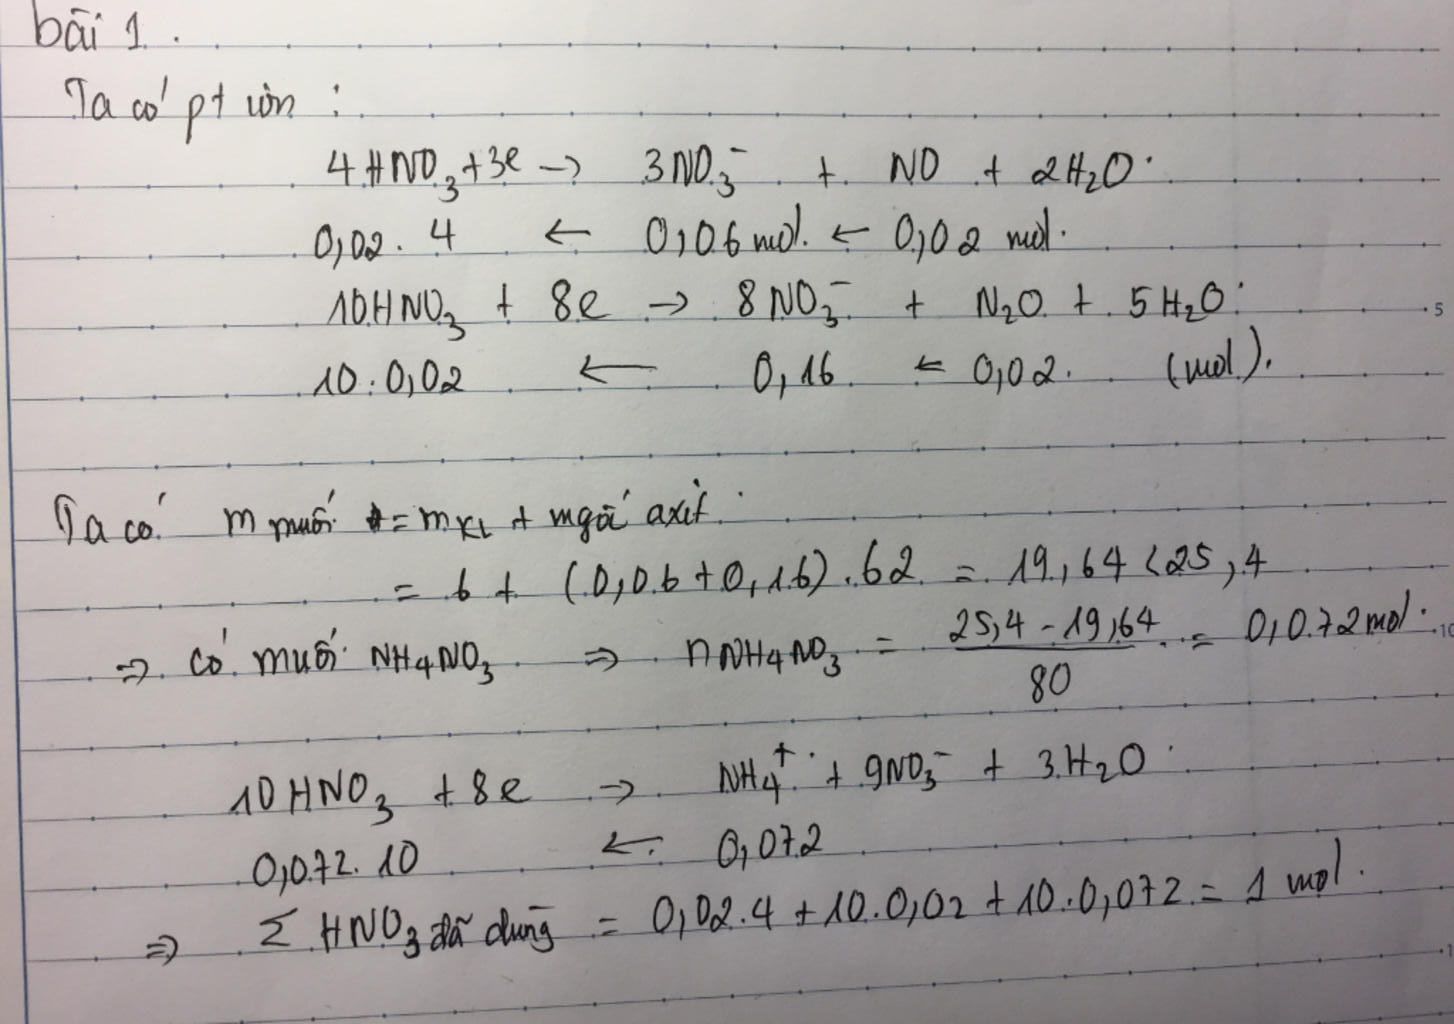 bài 1.
Ta có pt ion :
4HNO₃ + 3e → 3NO₃⁻ + NO + 2H₂O.
0,02. 4 ← 0,06 mol. ← 0,02 mol.
10HNO₃ + 8e → 8NO₃⁻ + N₂O + 5H₂O.
10.0,02 ← 0,16 ← 0,02. (mol).
Ta có m muối = m KL + m gốc axit.
= 6 + (0,06+0,16).62 = 19,64 < 25,4
⇒ có muối NH₄NO₃ ⇒ n NH₄NO₃ = (25,4 - 19,64)/80 = 0,072 mol.
10HNO₃ + 8e → NH₄⁺ + 9NO₃⁻ + 3H₂O.
0,072.10 ← 0,072
⇒ Σ HNO₃ đã dùng = 0,02.4 + 10.0,02 + 10.0,072 = 1 mol.
5
10